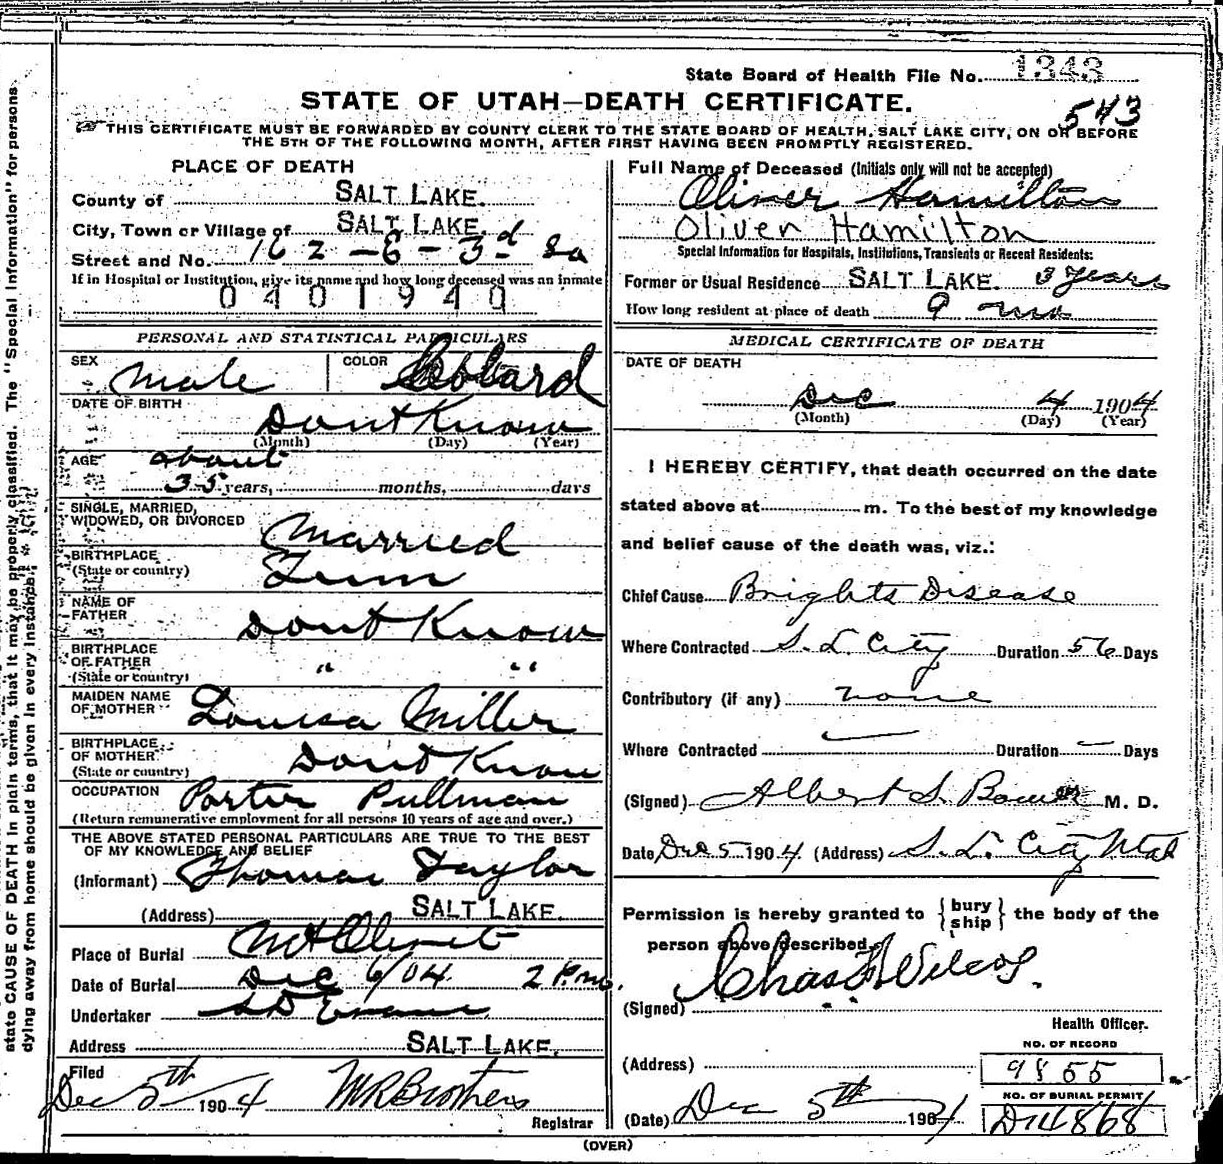 State Board of Health File No. 1343
543
STATE OF UTAH—DEATH CERTIFICATE.
THIS CERTIFICATE MUST BE FORWARDED BY COUNTY CLERK TO THE STATE BOARD OF HEALTH, SALT LAKE CITY, ON OR BEFORE
THE 5TH OF THE FOLLOWING MONTH, AFTER FIRST HAVING BEEN PROMPTLY REGISTERED.
PLACE OF DEATH
County of SALT LAKE.
City, Town or Village of SALT LAKE.
Street and No. 162 - E - 3rd So
If in Hospital or Institution, give its name and how long deceased was an inmate
0401940
PERSONAL AND STATISTICAL PARTICULARS
SEX Male COLOR
DATE OF BIRTH Dont Know
(Month) (Day) (Year)
AGE about
35 years, months, days
SINGLE, MARRIED,
WIDOWED, OR DIVORCED Married
BIRTHPLACE
(State or country) Tenn
NAME OF
FATHER Dont Know
BIRTHPLACE
OF FATHER " "
(State or country)
MAIDEN NAME
OF MOTHER Louisa Miller
BIRTHPLACE
OF MOTHER
(State or country) Dont Know
OCCUPATION Porter Pullman
(Return remunerative employment for all persons 10 years of age and over.)
THE ABOVE STATED PERSONAL PARTICULARS ARE TRUE TO THE BEST
OF MY KNOWLEDGE AND BELIEF
(Informant) Thomas Taylor
(Address) SALT LAKE.
Place of Burial Mt Olivet
Date of Burial Dec 6/04 2 P.m.
Undertaker S D Evans
Address SALT LAKE.
Filed
Dec 5th 1904 M R Brothers
Registrar
Full Name of Deceased (Initials only will not be accepted)
Oliver Hamilton
Oliver Hamilton
Special Information for Hospitals, Institutions, Transients or Recent Residents:
Former or Usual Residence SALT LAKE. 3 years
How long resident at place of death 9 mos
MEDICAL CERTIFICATE OF DEATH
DATE OF DEATH
Dec 4 1904
(Month) (Day) (Year)
I HEREBY CERTIFY, that death occurred on the date
stated above at m. To the best of my knowledge
and belief cause of the death was, viz.:
Chief Cause Brights Disease
Where Contracted S. L. City Duration 56 Days
Contributory (if any) none
Where Contracted — Duration — Days
(Signed) Albert S. M. D.
Date Dec 5 1904 (Address) S. L. City Utah
Permission is hereby granted to {bury
ship} the body of the
person above described.
(Signed) Chas F Wilcox.
Health Officer.
(Address)
NO. OF RECORD
9855
(Date) Dec 5th 1904
NO. OF BURIAL PERMIT
D14868
(OVER)
state CAUSE OF DEATH in plain terms, that it may be properly classified. The "Special Information" for persons
dying away from home should be given in every instance.